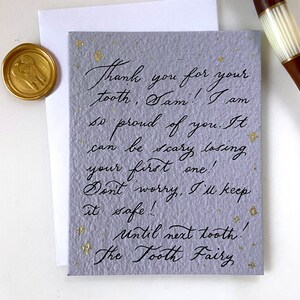 Thank you for your
tooth, Sam! I am
so proud of you. It
can be scary losing
your first one!
Don't worry, I'll keep
it safe!
Until next tooth!
The Tooth Fairy